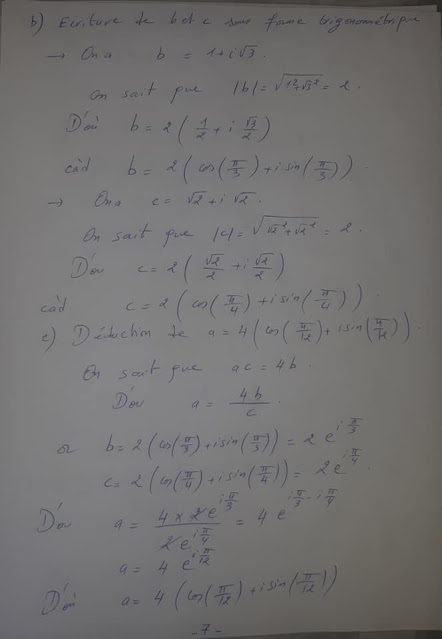 b) Ecriture de b et c sous forme trigonométrique
→ On a b = 1 + i√3.
On sait que |b| = √(1²+√3²) = 2.
D'où b = 2 ( 1/2 + i √3/2 )
càd b = 2 ( cos(π/3) + i sin(π/3) ).
→ On a c = √2 + i √2.
On sait que |c| = √(√2² + √2²) = 2.
D'où c = 2 ( √2/2 + i √2/2 )
càd c = 2 ( cos(π/4) + i sin(π/4) ).
c) Déduction de a = 4 ( cos(π/12) + i sin(π/12) ).
On sait que ac = 4b.
D'où a = 4b/c.
or b = 2 ( cos(π/3) + i sin(π/3) ) = 2 e^(i π/3)
c = 2 ( cos(π/4) + i sin(π/4) ) = 2 e^(i π/4).
D'où a = (4 × 2 e^(i π/3)) / (2 e^(i π/4)) = 4 e^(i π/3 - i π/4)
a = 4 e^(i π/12)
D'où a = 4 ( cos(π/12) + i sin(π/12) )
- 7 -